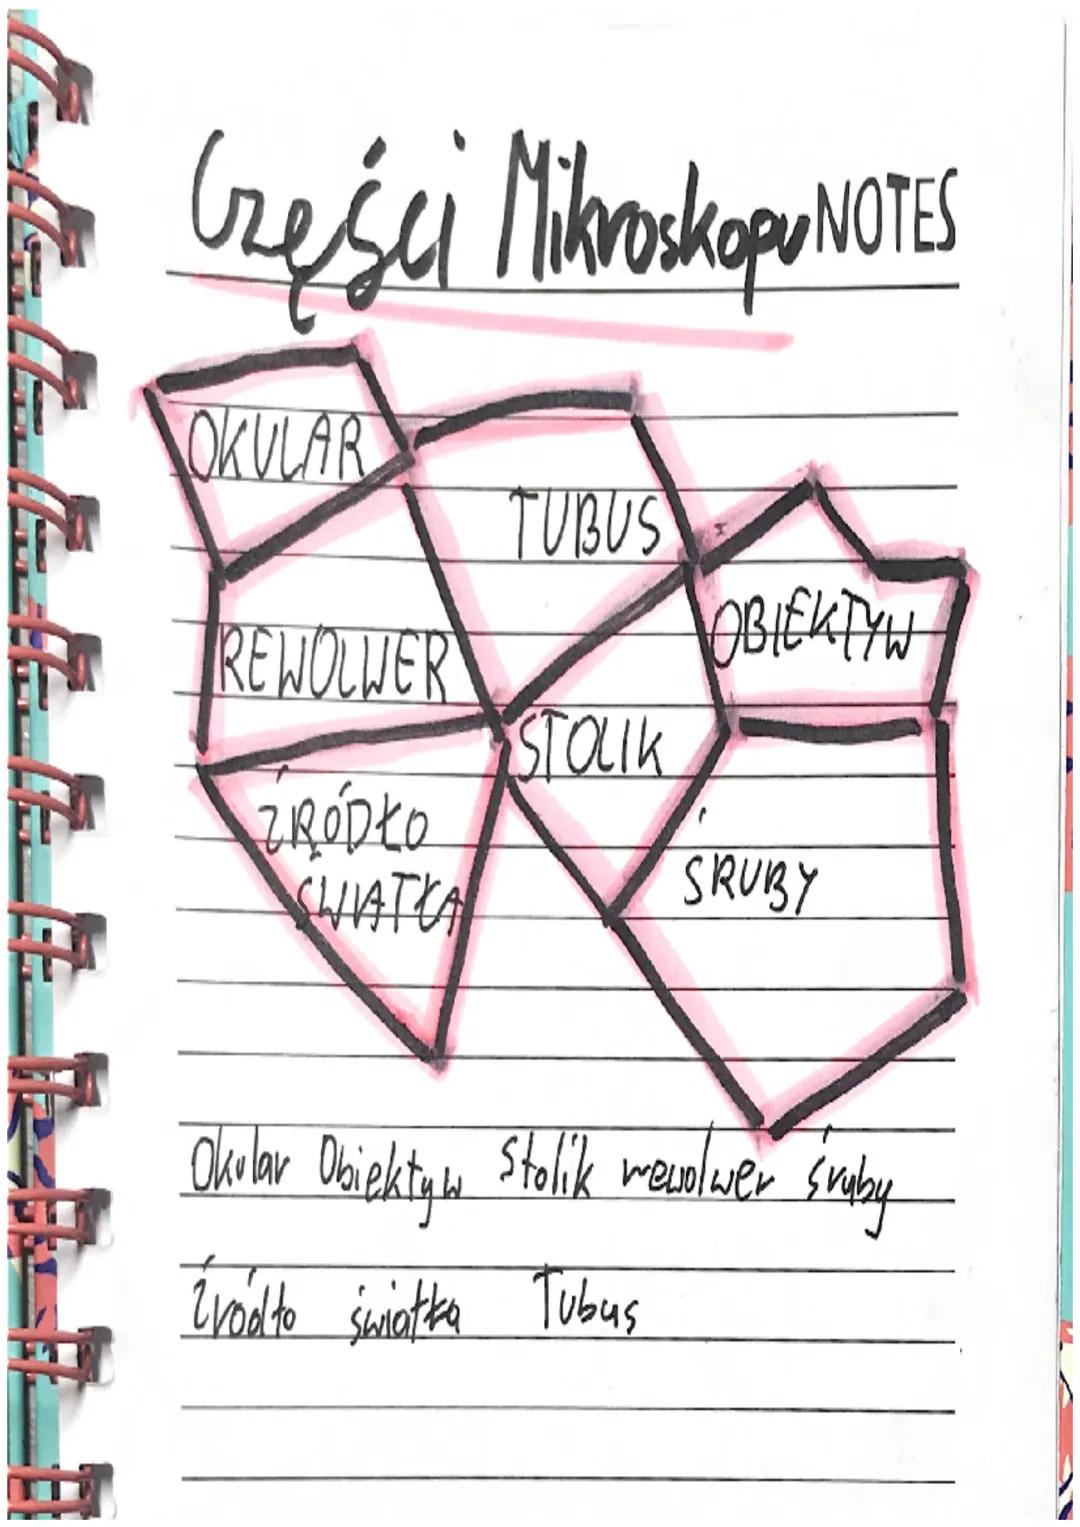 Części Mikroskopu NOTES
OKULAR
TUBUS
OBIEKTYW
REWOLWER
STOLIK
ŹRÓDŁO
ŚWIATŁA
ŚRUBY
Okular Obiektyw Stolik rewolwer śruby
źródło światła Tubus